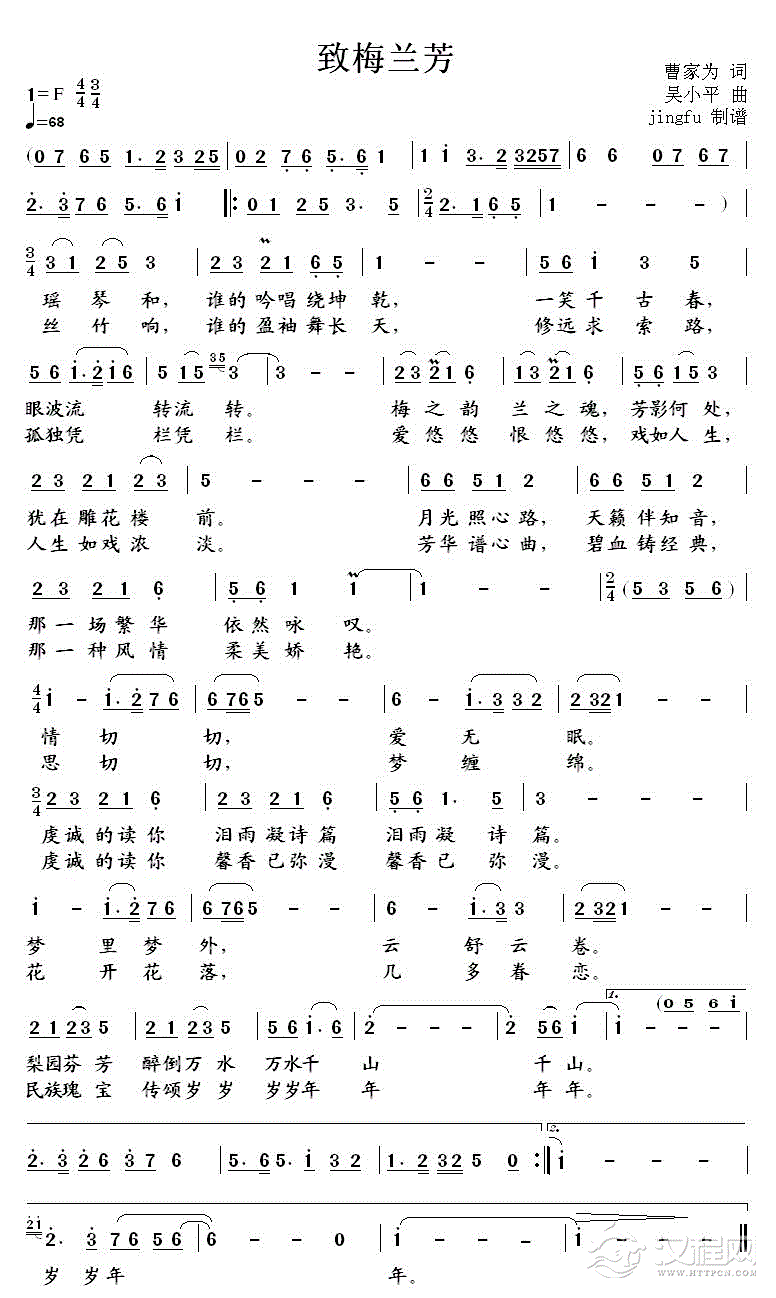 致梅兰芳
1=F 4/4 3/4
♩=68
曹家为 词
吴小平 曲
jingfu 制谱
(0 7 6 5 1. 2 3 2 5 | 0 2 7 6 5. 6 1 | 1 1 3. 2 3 2 5 7 | 6 6 0 7 6 7 |
2. 3 7 6 5. 6 1 ‖: 0 1 2 5 3. 5 | 2/4 2. 1 6 5 | 1 - - - )
3/4 3 1 2 5 3 | 2 3 2 1 6 5 | 1 - - | 5 6 1 3 5 |
瑶琴和，谁的吟唱绕坤乾，一笑千古春，
丝竹响，谁的盈袖舞长天，修远求索路，
5 6 1. 2 1 6 | 5 1 5 3 5 3 | 3 - - | 2 3 2 1 6 | 1 3 2 1 6 | 5 6 1 5 3 |
眼波流转流转。梅之韵兰之魂，芳影何处，
孤独凭栏凭栏。爱悠悠恨悠悠，戏如人生，
2 3 2 1 2 3 | 5 - - - | 6 6 5 1 2 | 6 6 5 1 2 |
犹在雕花楼前。月光照心路，天籁伴知音，
人生如戏浓淡。芳华谱心曲，碧血铸经典，
2 3 2 1 6 | 5 6 1 1 | 1 - - | 2/4 (5 3 5 6) |
那一场繁华依然咏叹。
那一种风情柔美娇艳。
4/4 1 - 1. 2 7 6 | 6 7 6 5 5 - - | 6 - 1. 3 3 3 2 | 2 3 2 1 1 - - |
情切切，爱无眠。
思切切，梦缠绵。
3/4 2 3 2 1 6 | 2 3 2 1 6 | 5 6 1. 5 | 3 - - |
虔诚的读你泪雨凝诗篇泪雨凝诗篇。
虔诚的读你馨香已弥漫馨香已弥漫。
1 - 1. 2 7 6 | 6 7 6 5 5 - - | 6 - 1. 3 3 | 2 3 2 1 1 - - |
梦里梦外，云舒云卷。
花开花落，几多眷恋。
1. (0 5 6 1
2 1 2 3 5 | 2 1 2 3 5 | 6 5 1. 6 | 2 - - | 2 5 6 1 | 1 - -
梨园芬芳醉倒万水万水千山千山。
民族瑰宝传颂岁岁岁岁年年年年。
2.
2. 3 2 6 3 7 6 | 5. 6 5. 5 1 | 1. 2 3 2 5 0 :‖ 1 - - |
2 1 2. 3 7 6 5 6 | 6 - - 0 | 1 - - - | 1 - - - ‖
岁岁年年。
汉程网
WWW.HTTPCN.COM